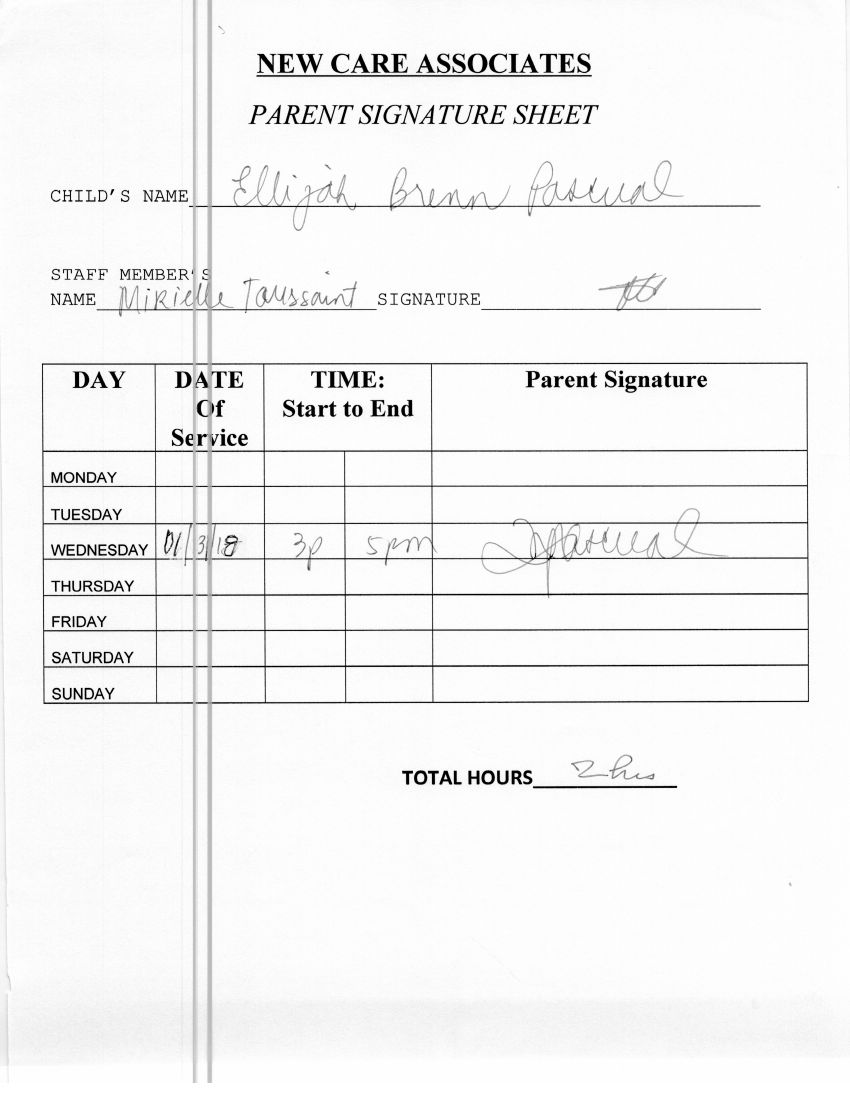 NEW CARE ASSOCIATES
PARENT SIGNATURE SHEET
CHILD'S NAME Ellijah Brenn Pascual
STAFF MEMBER'S
NAME Mirielle Toussaint SIGNATURE
DAY DATE TIME: Parent Signature
Of Start to End
Service
MONDAY
TUESDAY
WEDNESDAY 01/3/18 3p 5pm
THURSDAY
FRIDAY
SATURDAY
SUNDAY
TOTAL HOURS 2 hrs